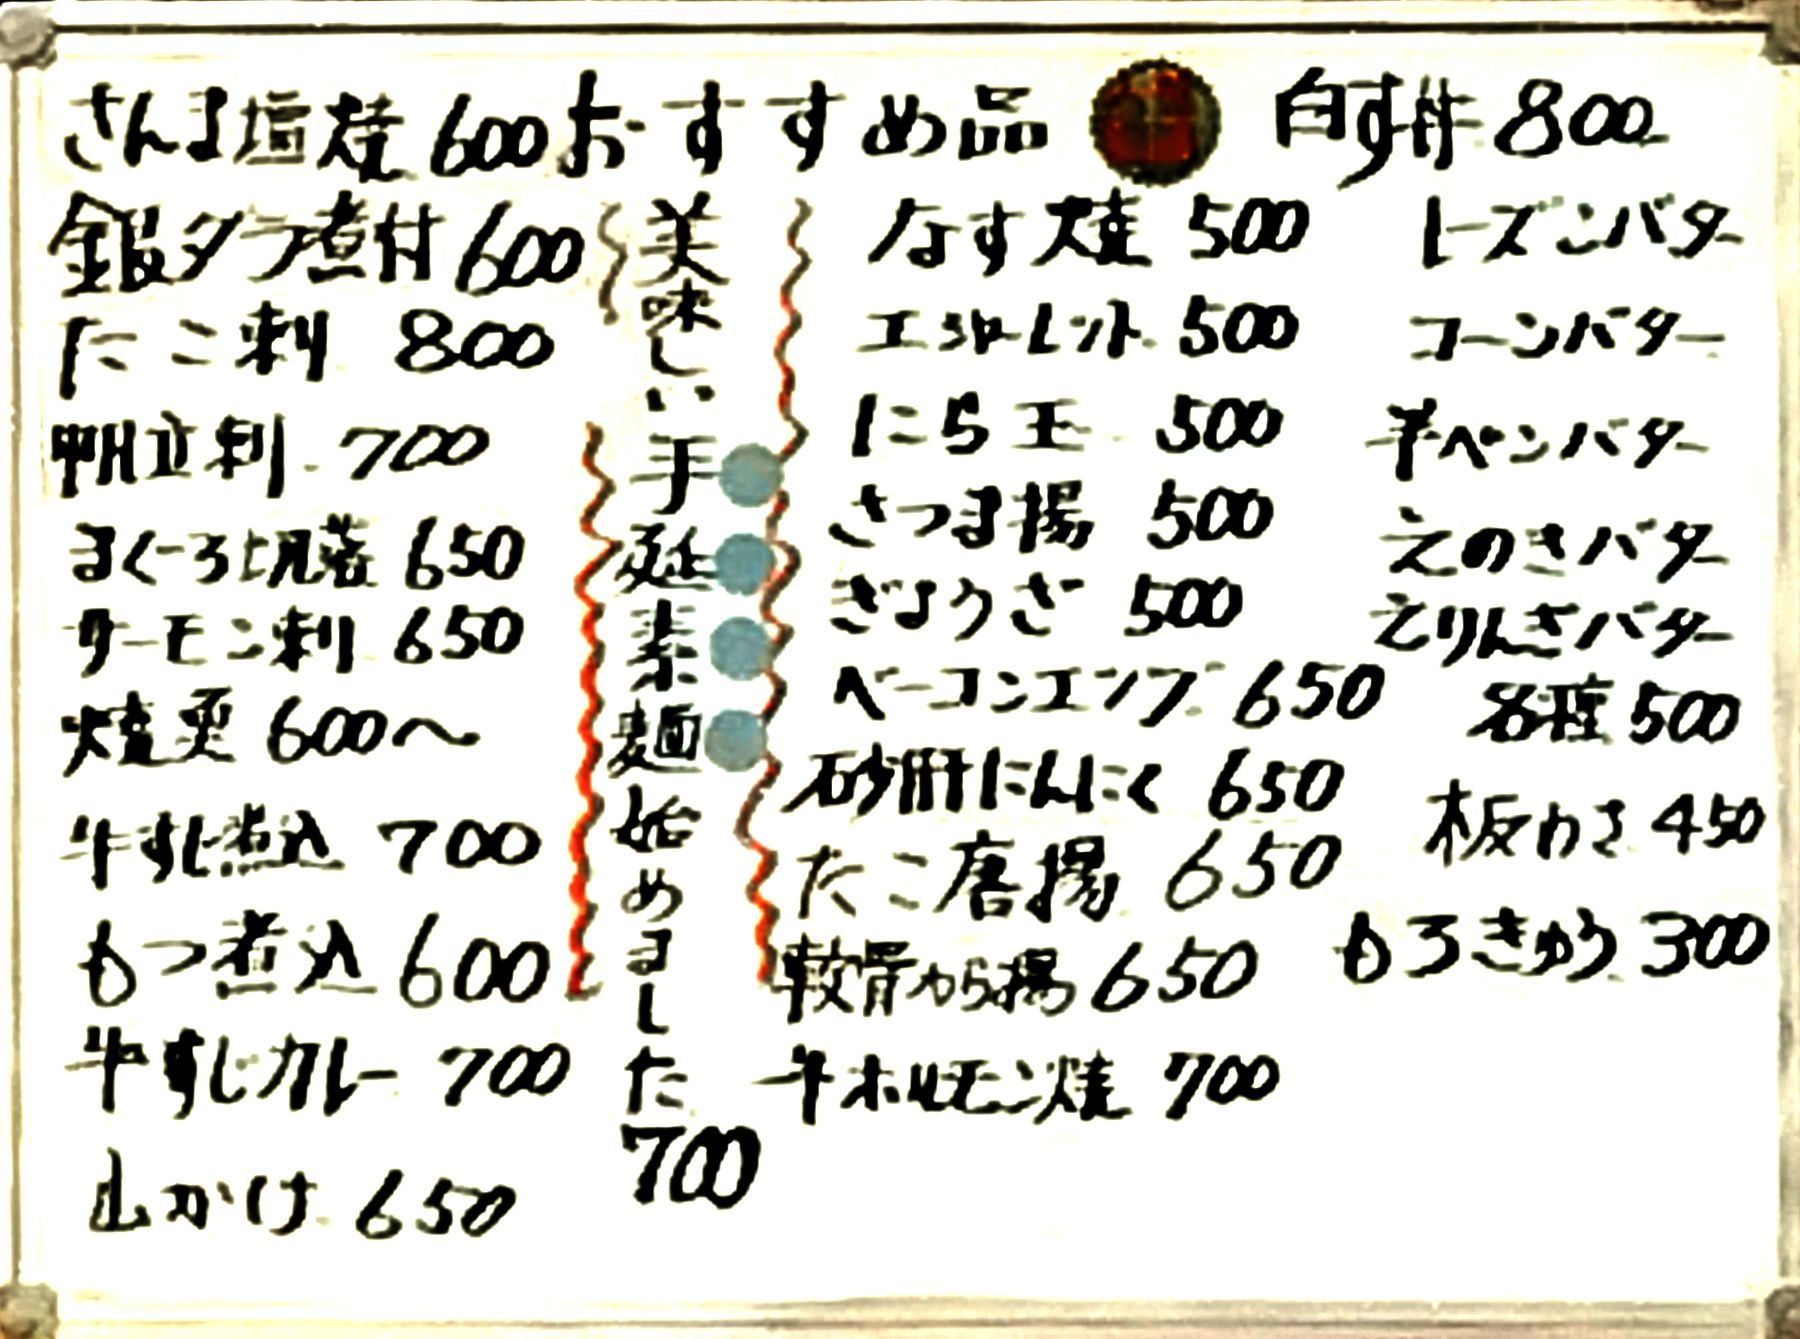 おすすめ品
さんま塩焼 600
銀ダラ煮付 600
たこ刺 800
帆立刺 700
まぐろ切落 650
サーモン刺 650
焼更 600〜
牛すじ煮込 700
もつ煮込 600
牛すじカレー 700
山かけ 650
美味しい手延素麺始めました
700
なす焼 500
エシャレット 500
にら玉 500
さつま揚 500
ぎょうざ 500
ベーコンエッグ 650
砂肝にんにく 650
たこ唐揚 650
軟骨から揚 650
牛ホルモン焼 700
白す丼 800
レーズンバター
コーンバター
半ペンバター
えのきバター
えりんぎバター
各種 500
板わさ 450
もろきゅう 300